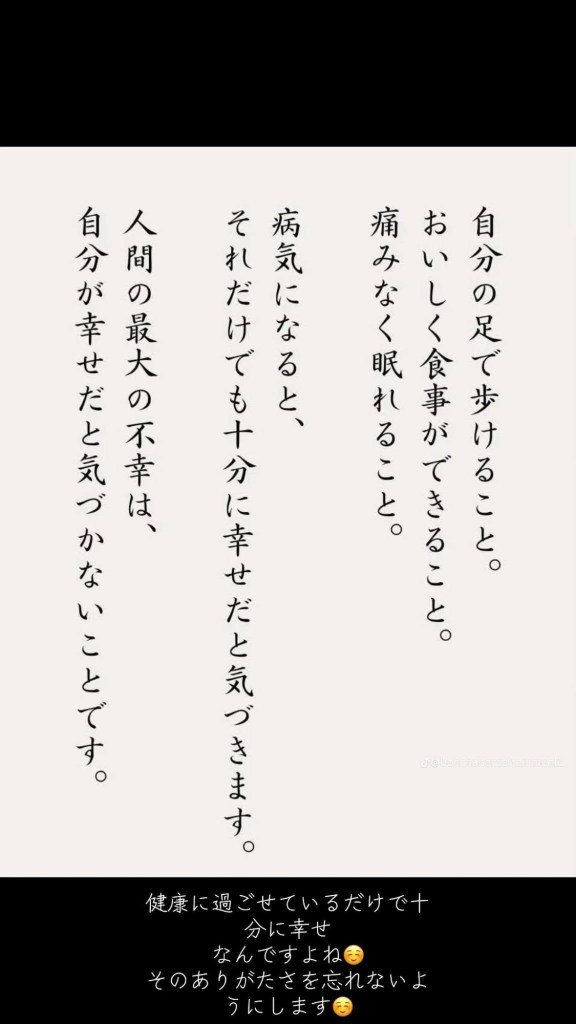 自分の足で歩けること。
おいしく食事ができること。
痛みなく眠れること。
病気になると、
それだけでも十分に幸せだと気づきます。
人間の最大の不幸は、
自分が幸せだと気づかないことです。
健康に過ごせているだけで十
分に幸せ
なんですよね☺️
そのありがたさを忘れないよ
うにします☺️